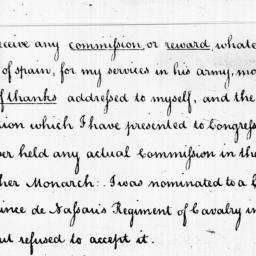 ceive any commission, or reward, whate
of spain, for my services in his army, mo
f thanks addressed to myself, and the
ion which I have presented to Congress
er held any actual Commission in the
her Monarch: I was nominated to a
ince de Nassau's Regiment of Cavalry in
ut refused to accept it.